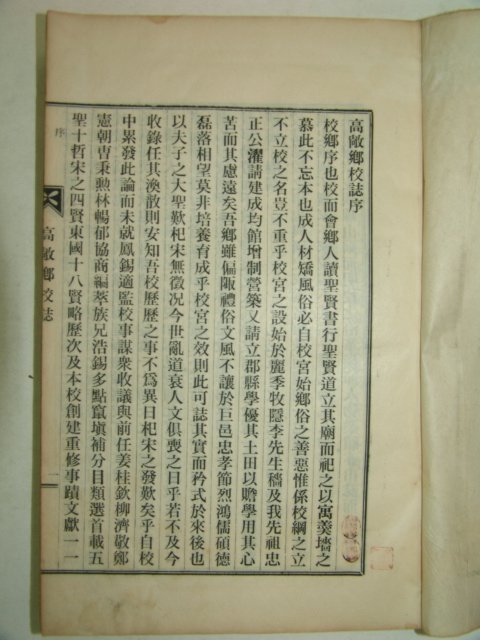 高敞鄉校誌序
校鄉序也校而會鄉人讀聖賢書行聖賢道立其廟而祀之以寓羹墻之
慕此不忘本也成人材矯風俗必自校宮始鄉俗之善惡惟係校綱之立
不立校之名豈不重乎校宮之設始於麗季牧隱李先生穡及我先祖忠
正公濯請建成均館增制營築又請立郡縣學優其土田以贍學用其心
苦而其慮遠矣吾鄉雖偏陬禮俗文風不讓於巨邑忠孝節烈鴻儒碩德
磊落相望莫非培養育成乎校宮之效則此可誌其實而矜式於來後也
以夫子之大聖歎杞宋無徵況今世亂道衰人文俱喪之日乎若不及今
收錄任其渙散則安知吾校歷歷之事不爲異日杞宋之發歎矣乎自校
中累發此論而未就鳳錫適監校事謀衆收議與前任姜桂欽柳濟敬鄭
憲朝曺秉勲林暢郁協商編萃族兄浩錫多點竄塡補分目類選首載五
聖十哲宋之四賢東國十八賢略歷次及本校創建重修事蹟文獻一一
序
高敞鄉校誌
一